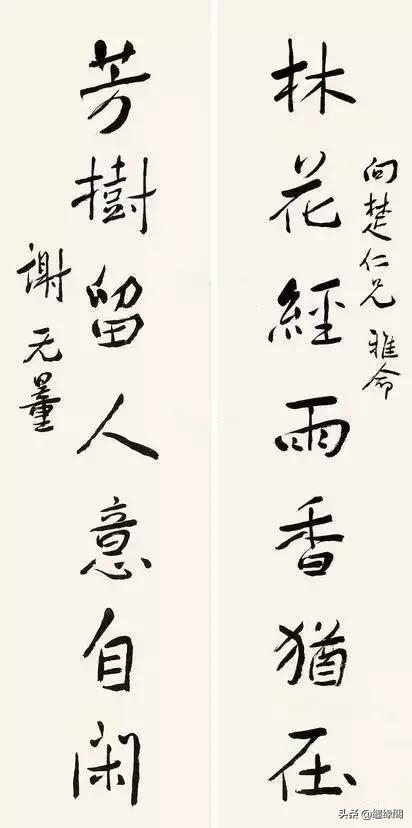 向楚仁兄 雅命
林花經雨香猶在
芳樹留人意自閑
謝无量
头条@纒缘閣